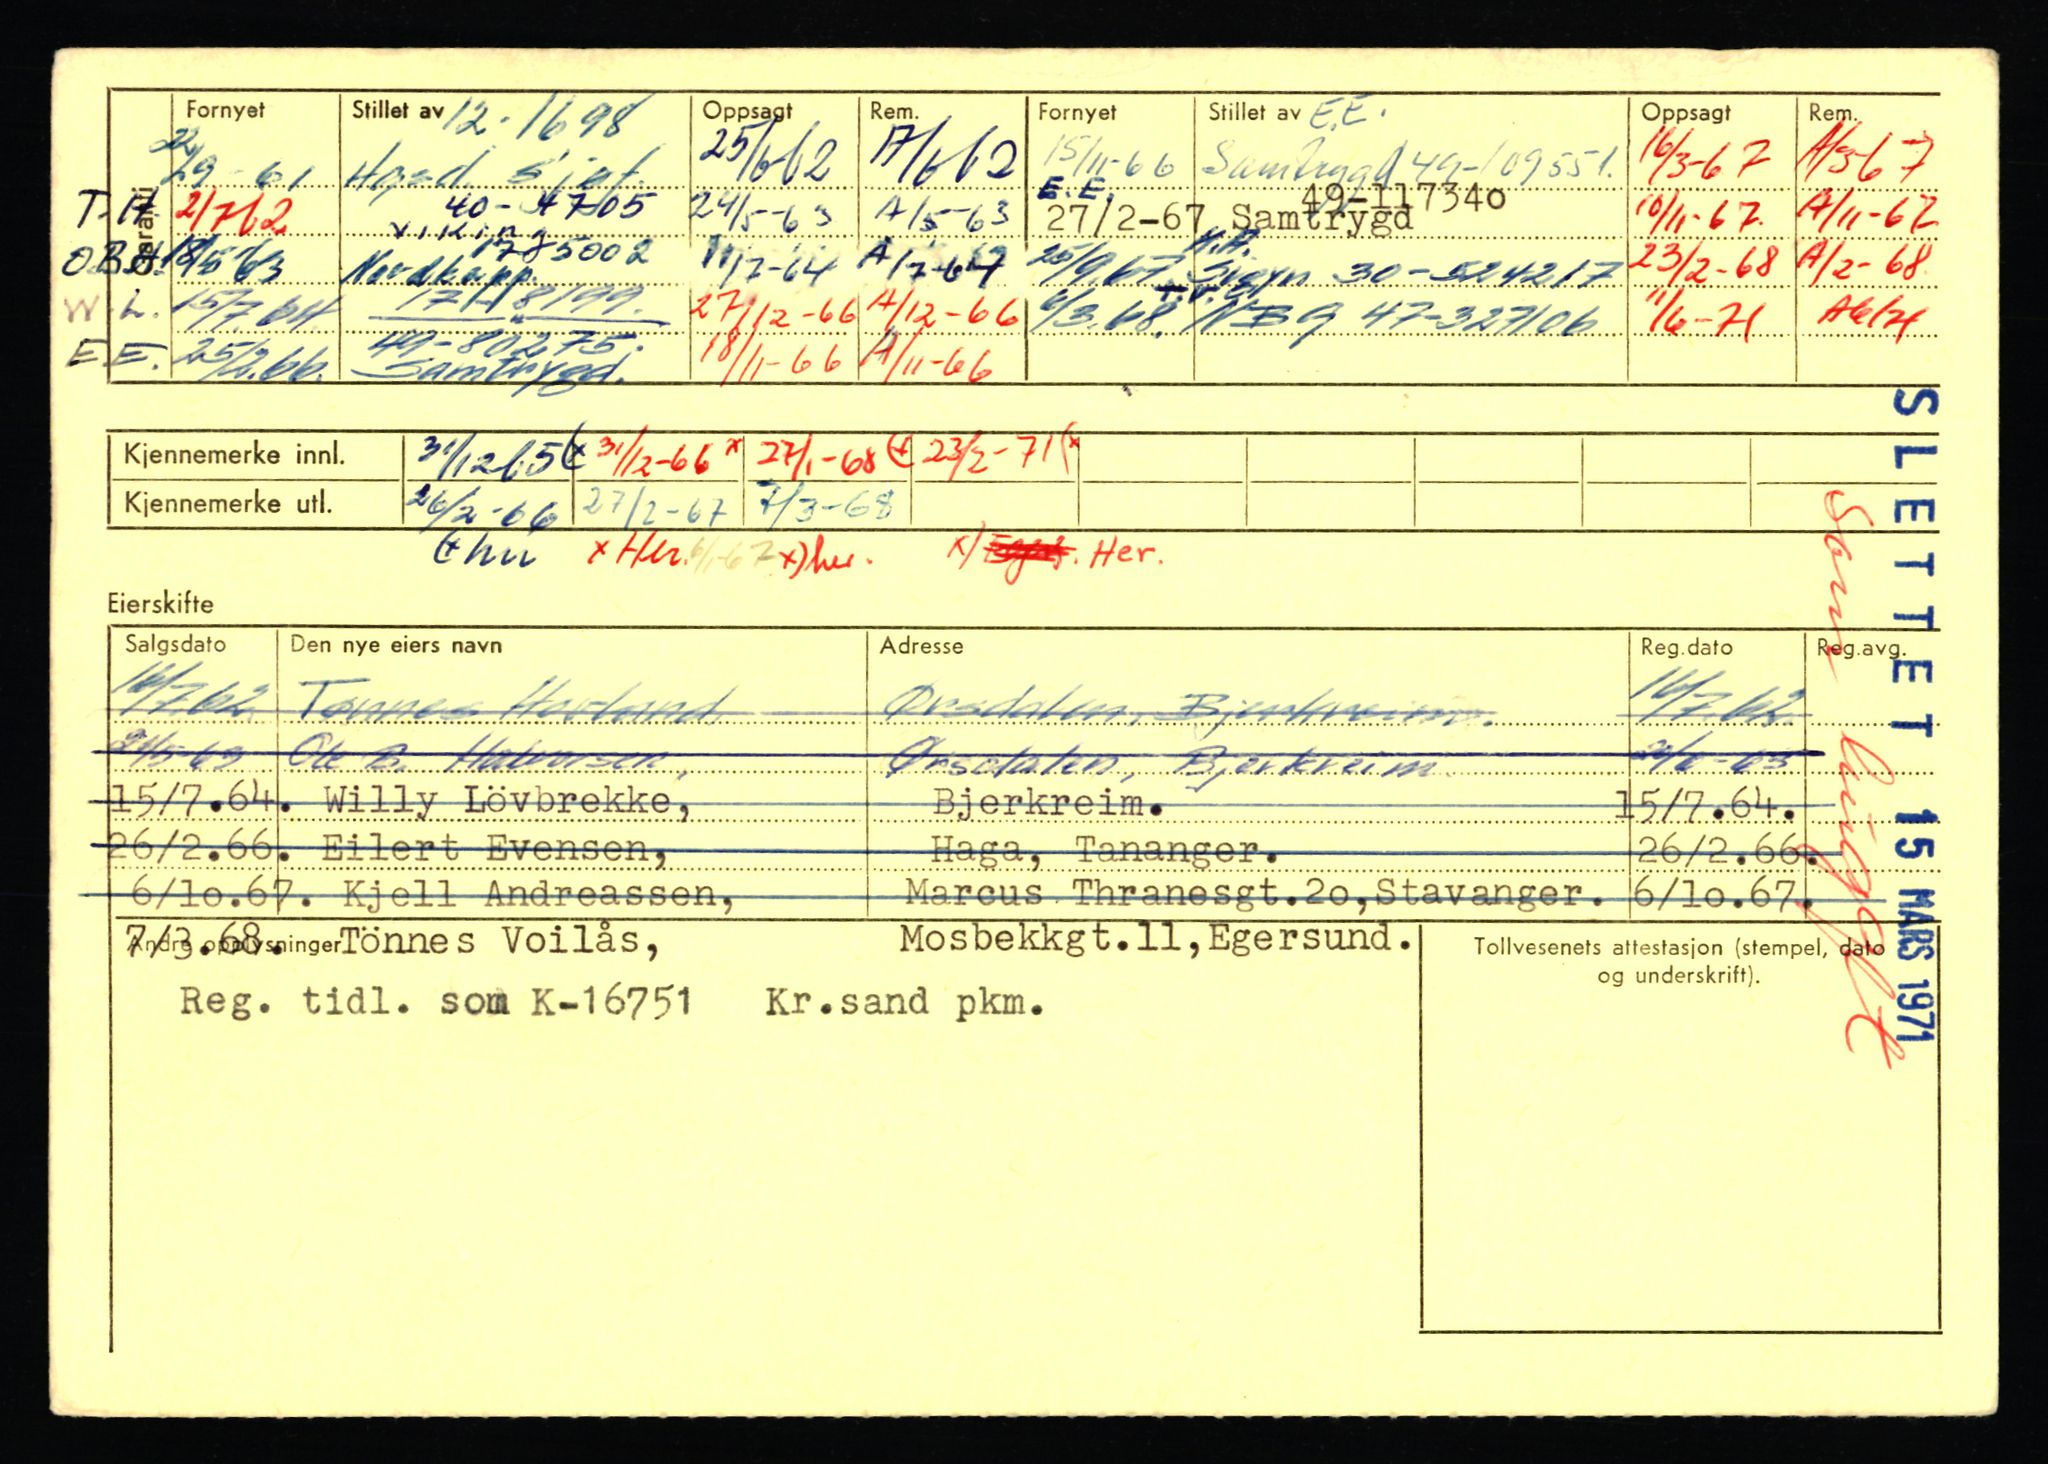 Garanti
Fornyet Stillet av 12-1698 Oppsagt Rem. Fornyet Stillet av E.E. Oppsagt Rem.
29-61 25/6-62 A/6-62 15/11-66 Samtrygd 49-109551. 16/3-67 A/3-67
T.H 2/7-62 40-4705 Viking 24/5-63 A/5-63 E.E. 27/2-67 Samtrygd 49-117340 10/11-67. A/11-67
O.B.H. Nordkapp. 1785002 A/7-64 25/9.67 K.A. 30-524217 23/2-68 A/2-68
W.L. 15/7.64 27/12-66 A/12-66 6/3.68. T.V. 47-327106 11/6-71 A6/71
E.E. 25/2.66. 49-80275. Samtrygd. 18/11-66 A/11-66
Kjennemerke innl. 31/12-65 (x 31/12-66 x 27/1-68 (x 23/2-71 (x
Kjennemerke utl. 26/2-66 27/2-67 7/3-68
(x her x Her. 6/1-67 x) her. x) Her.
Eierskifte
Salgsdato Den nye eiers navn Adresse Reg.dato Reg.avg.
16/7.62. Tønnes Havland Ørsdalen, Bjerkreim. 16/7.62.
Ole B. Halvorsen, Ørsdalen, Bjerkreim.
15/7.64. Willy Lövbrekke, Bjerkreim. 15/7.64.
26/2.66. Eilert Evensen, Haga, Tananger. 26/2.66.
6/10.67. Kjell Andreassen, Marcus Thranesgt.20, Stavanger. 6/10.67.
7/3.68. Tönnes Voilås, Mosbekkgt.11, Egersund.
Andre opplysninger
Reg. tidl. som K-16751 Kr.sand pkm.
Tollvesenets attestasjon (stempel, dato
og underskrift).
SLETTET 15 MARS 1971
Som